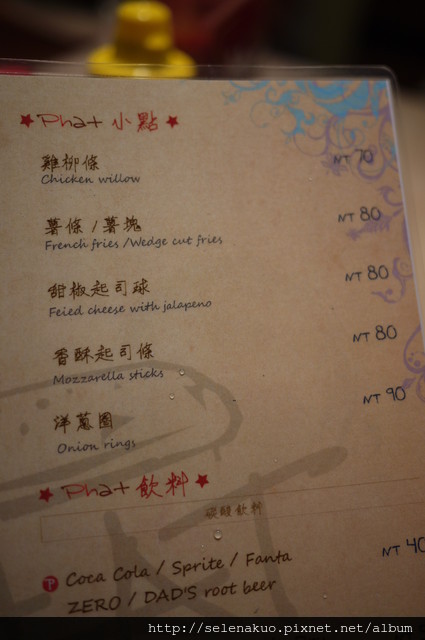 ★ Phat 小點 ★
雞柳條 NT 70
Chicken willow
薯條 / 薯塊 NT 80
French fries / Wedge cut fries
甜椒起司球 NT 80
Feied cheese with jalapeno
香酥起司條 NT 80
Mozzarella sticks
洋蔥圈 NT 90
Onion rings
★ Phat 飲料 ★
碳酸飲料
Coca Cola / Sprite / Fanta NT 40
ZERO / DAD'S root beer
http://selenakuo.pixnet.net/album